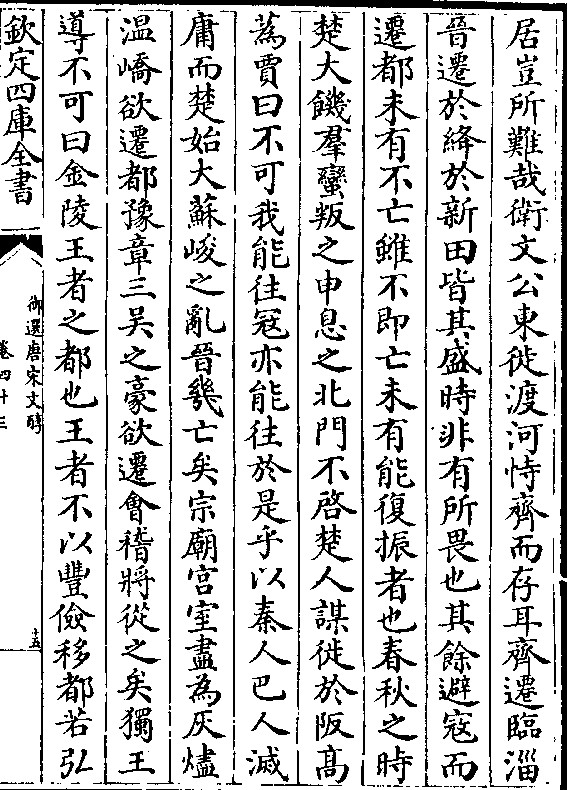 居豈所難哉衛文公東徙渡河恃齊而存耳齊遷臨淄
晉遷於絳於新田皆其盛時非有所畏也其餘避寇而
遷都未有不亡雖不即亡未有能復振者也春秋之時
楚大饑羣蠻叛之申息之北門不啓楚人謀徙於阪高
蒍賈曰不可我能往冦亦能往於是乎以秦人巴人滅
庸而楚始大蘇峻之亂晉幾亡矣宗廟宫室盡為灰燼
温嶠欲遷都豫章三吴之豪欲遷會稽將從之矣獨王
導不可曰金陵王者之都也王者不以豐儉移都若弘
欽定四庫全書
御選唐宋文醇
卷四十三
十五